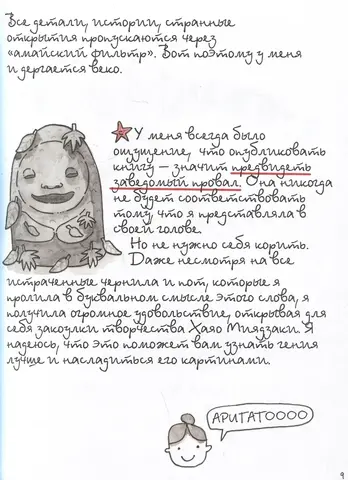 Все детали, истории, странные
открытия пропускаются через
«амайский фильтр». Вот поэтому у меня
и дергается веко.
У меня всегда было
ощущение, что опубликовать
книгу — значит предвидеть
заведомый провал. Она никогда
не будет соответствовать
тому, что я представляла в
своей голове.
Но не нужно себя корить.
Даже несмотря на все
истраченные чернила и пот, которые я
пролила в буквальном смысле этого слова, я
получила огромное удовольствие, открывая для
себя закоулки творчества Хаяо Миядзаки. Я
надеюсь, что это поможет вам узнать гения
лучше и насладиться его картинами.
АРИГАТОООО
9